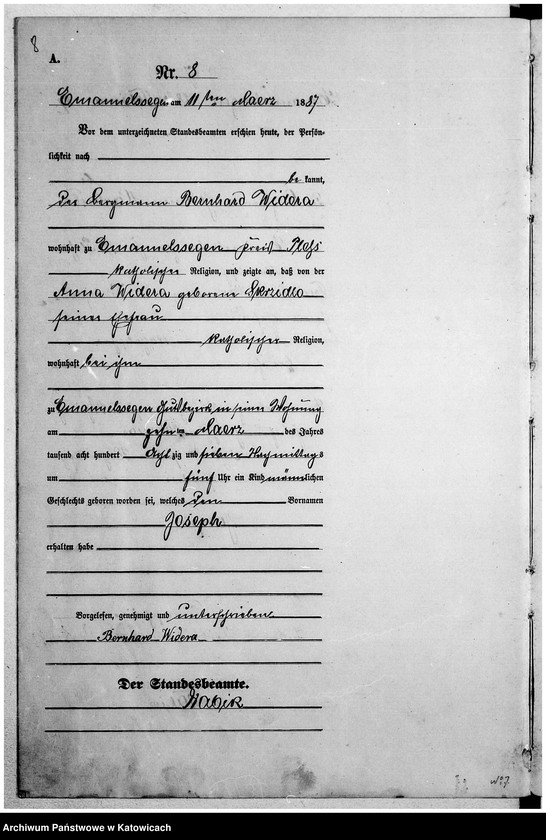 8
A.
Nr. 8
Emanuelssegen am 11 ten Maerz 1887
Vor dem unterzeichneten Standesbeamten erschien heute, der Persön-
lichkeit nach
be kannt,
der Bergmann Bernhard Widera
wohnhaft zu Emanuelssegen Kreis Pleß
katholischer Religion, und zeigte an, daß von der
Anna Widera geborene Skrzidlo
seiner Ehefrau
katholischer Religion,
wohnhaft bei ihm
zu Emanuelssegen Gutsbezirk in seiner Wohnung
am zehn ten Maerz des Jahres
tausend acht hundert Acht zig und sieben Nachmittags
um fünf Uhr ein Kind männlichen
Geschlechts geboren worden sei, welches den Vornamen
Joseph
erhalten habe
Vorgelesen, genehmigt und unterschrieben
Bernhard Widera
Der Standesbeamte.
Archiwum Państwowe w Katowicach